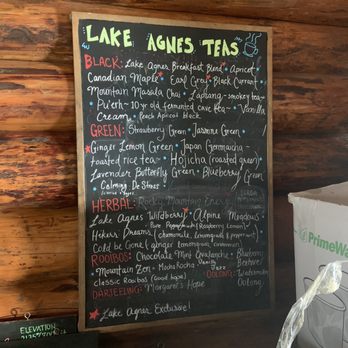 LAKE AGNES TEAS
BLACK: Lake Agnes Breakfast Blend • Apricot
Canadian Maple • Earl Grey • Black Currant
Mountain Masala Chai • Lapsang-smokey tea
Pu'erh-10 yr old fermented cave tea • Vanilla
Cream • Peach Apricot Black
GREEN: Strawberry Green • Jasmine Green
Ginger Lemon Green • Japan Genmaicha-
toasted rice tea • Hojicha (roasted green)
Lavender Butterfly Green • Blueberry Green
• Calming De Stress
HERBAL: Rocky Mountain Energy
Lake Agnes Wildberry • Alpine Meadows
• Pure Peppermint (Raspberry Lemon)
Hikers Dreams (chamomile, lemongrass & peppermint)
Cold be Gone (ginger, lemongrass, cinnamon)
ROOIBOS: Chocolate Mint Avalanche • Blueberry
• Mountain Zen • Mocha Rocha Vanilla Bonfire
classic Rooibos (Good hope) OOLONG: Watermelon
DARJEELING: Margaret's Hope Oolong
Lake Agnes Exclusive!
PrimeWa
ELEVATION